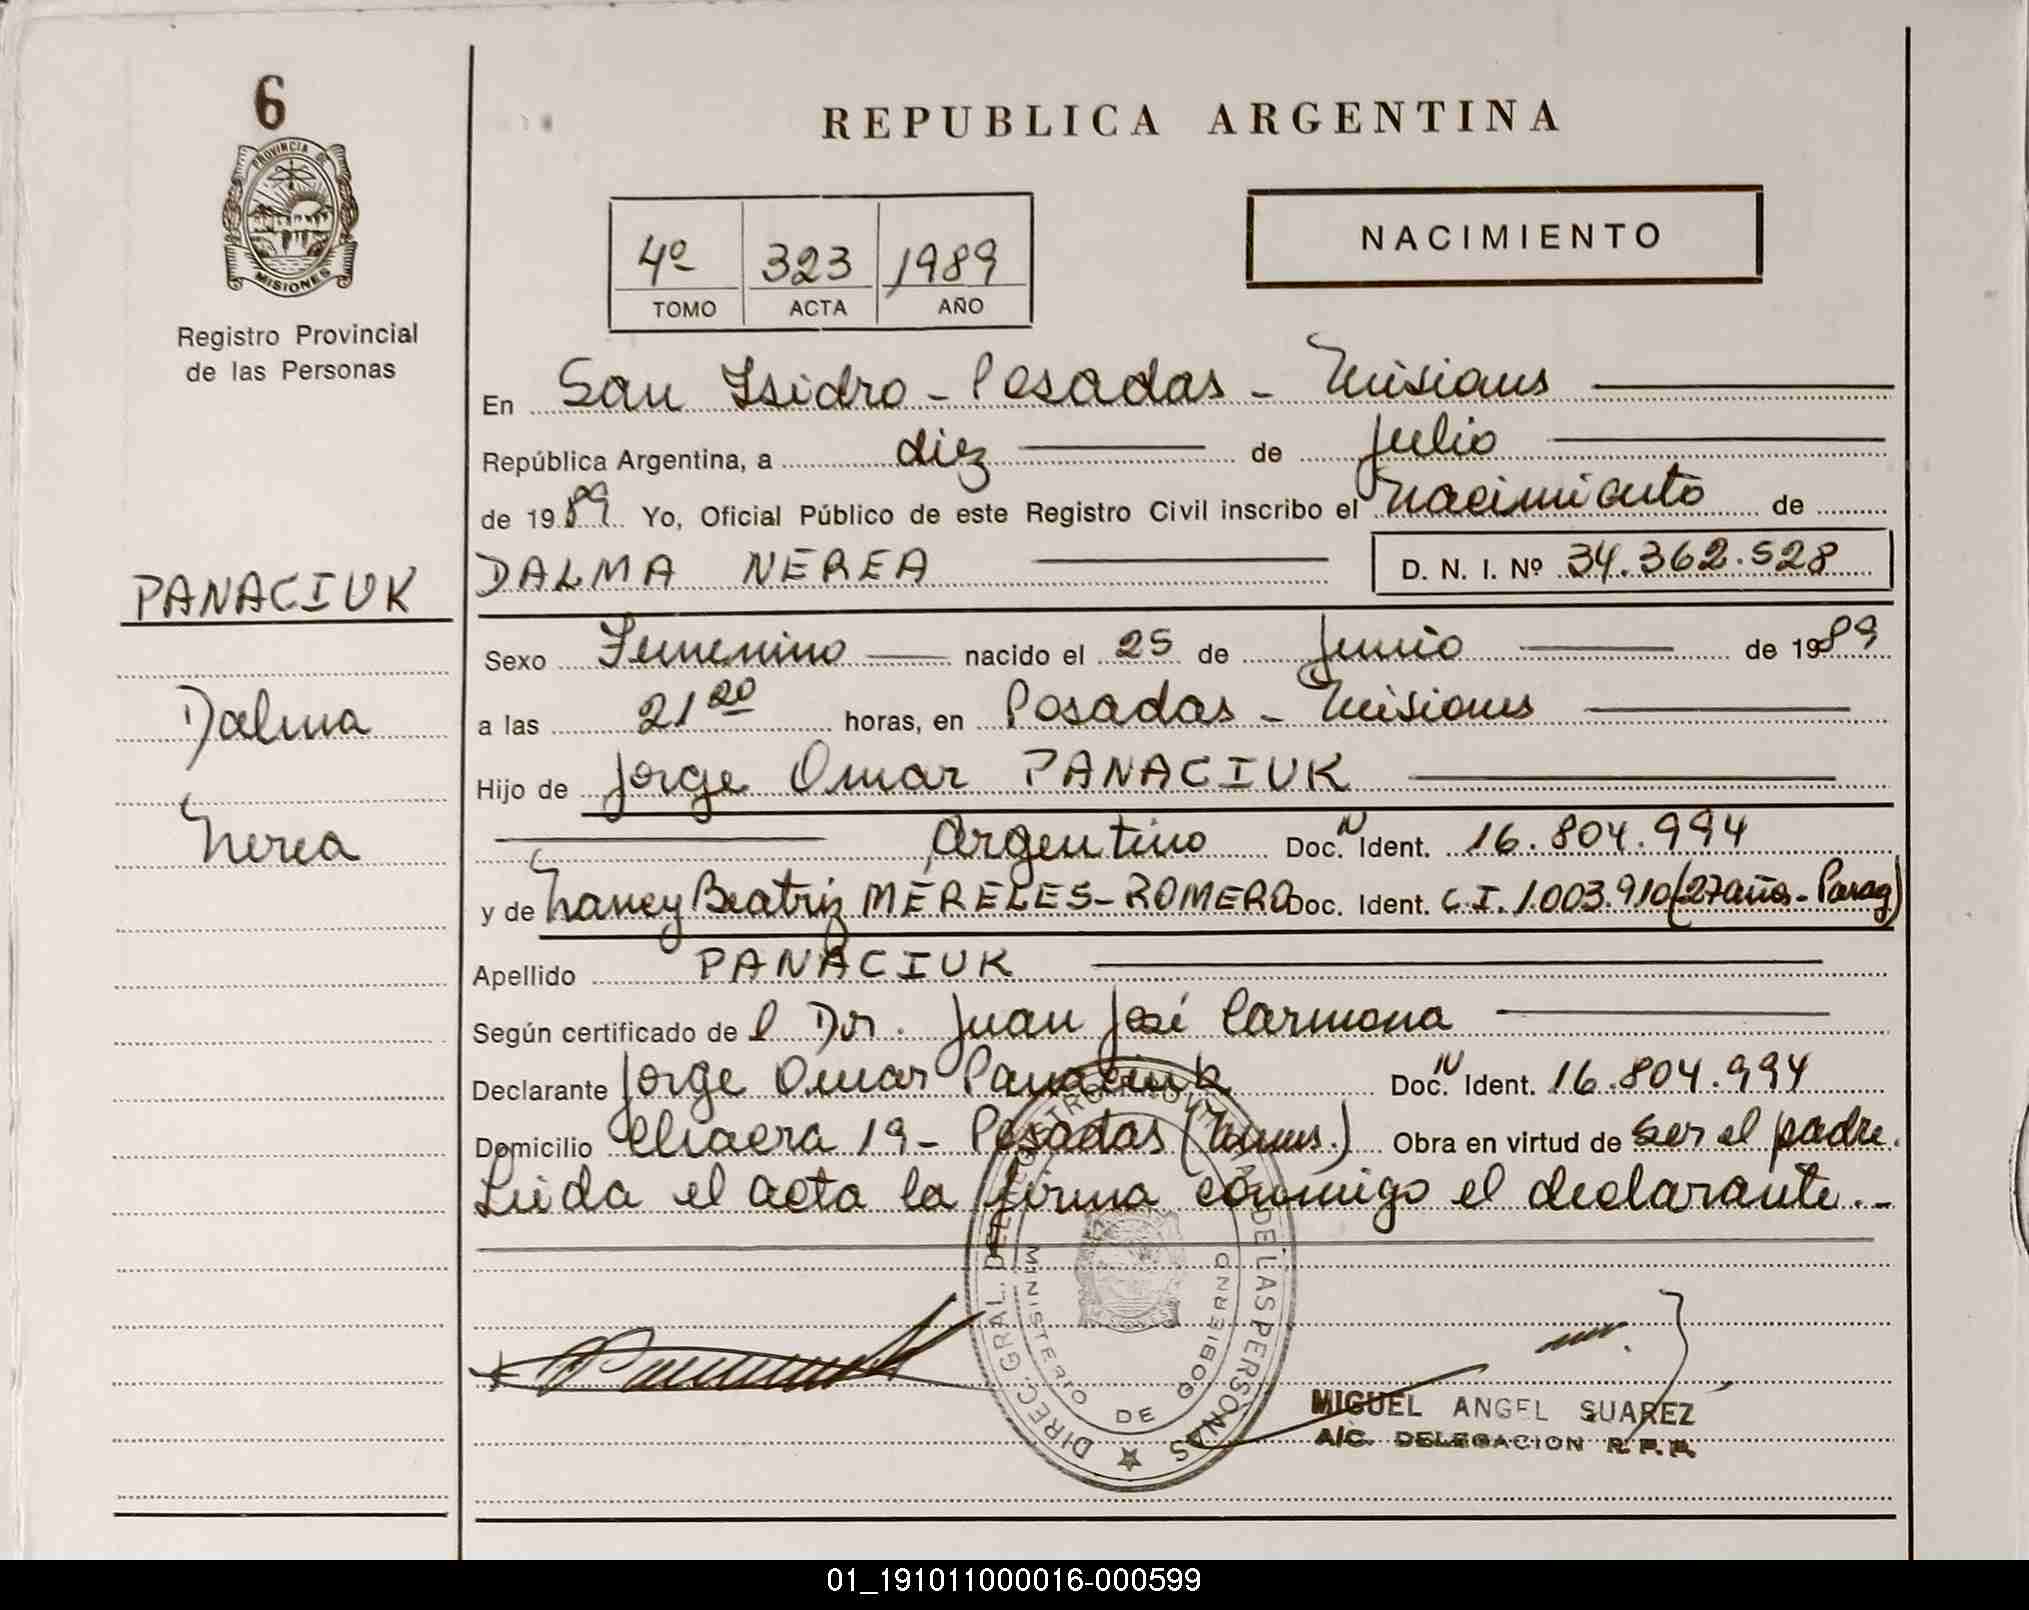 6
PROVINCIA DE
MISIONES
Registro Provincial
de las Personas
PANACIUK
Dalma
Nerea
REPUBLICA ARGENTINA
4º 323 1989
TOMO ACTA AÑO
NACIMIENTO
En San Isidro - Posadas - Misiones
República Argentina, a diez de Julio
de 1989 Yo, Oficial Público de este Registro Civil inscribo el Nacimiento de
DALMA NEREA D. N. I. Nº 34.362.528
Sexo Femenino nacido el 25 de Junio de 1989
a las 21 20 horas, en Posadas - Misiones
Hijo de Jorge Omar PANACIUK
Argentino Doc. N Ident. 16.804.994
y de Nancy Beatriz MERELES-ROMERO Doc. Ident. C.I. 1.003.910 (27 años - Parag)
Apellido PANACIUK
Según certificado de l Dr. Juan José Carmona
Declarante Jorge Omar Panaciuk Doc. N Ident. 16.804.994
Domicilio Chacra 19 - Posadas (Mnes.) Obra en virtud de ser el padre.
Leída el acta la firma conmigo el declarante.-
DIREC. GRAL. DEL REGISTRO PROVINCIAL DE LAS PERSONAS
MINISTERIO DE GOBIERNO
MIGUEL ANGEL SUAREZ
A/C. DELEGACION R. P. P.
01_191011000016-000599